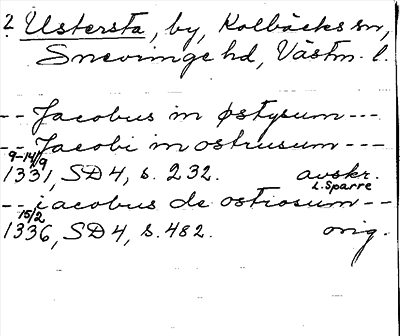 ? Ustersta, by, Kolbäcks sn,
Snevringe hd, Västm. l.
-- Jacobus in østysum ---
-- Jacobi in ostrusum ----
9-14/9
1331, SD 4, s. 232. avskr.
L. Sparre
-- iacobus de ostiosum --
15/2
1336, SD 4, s. 482. orig.